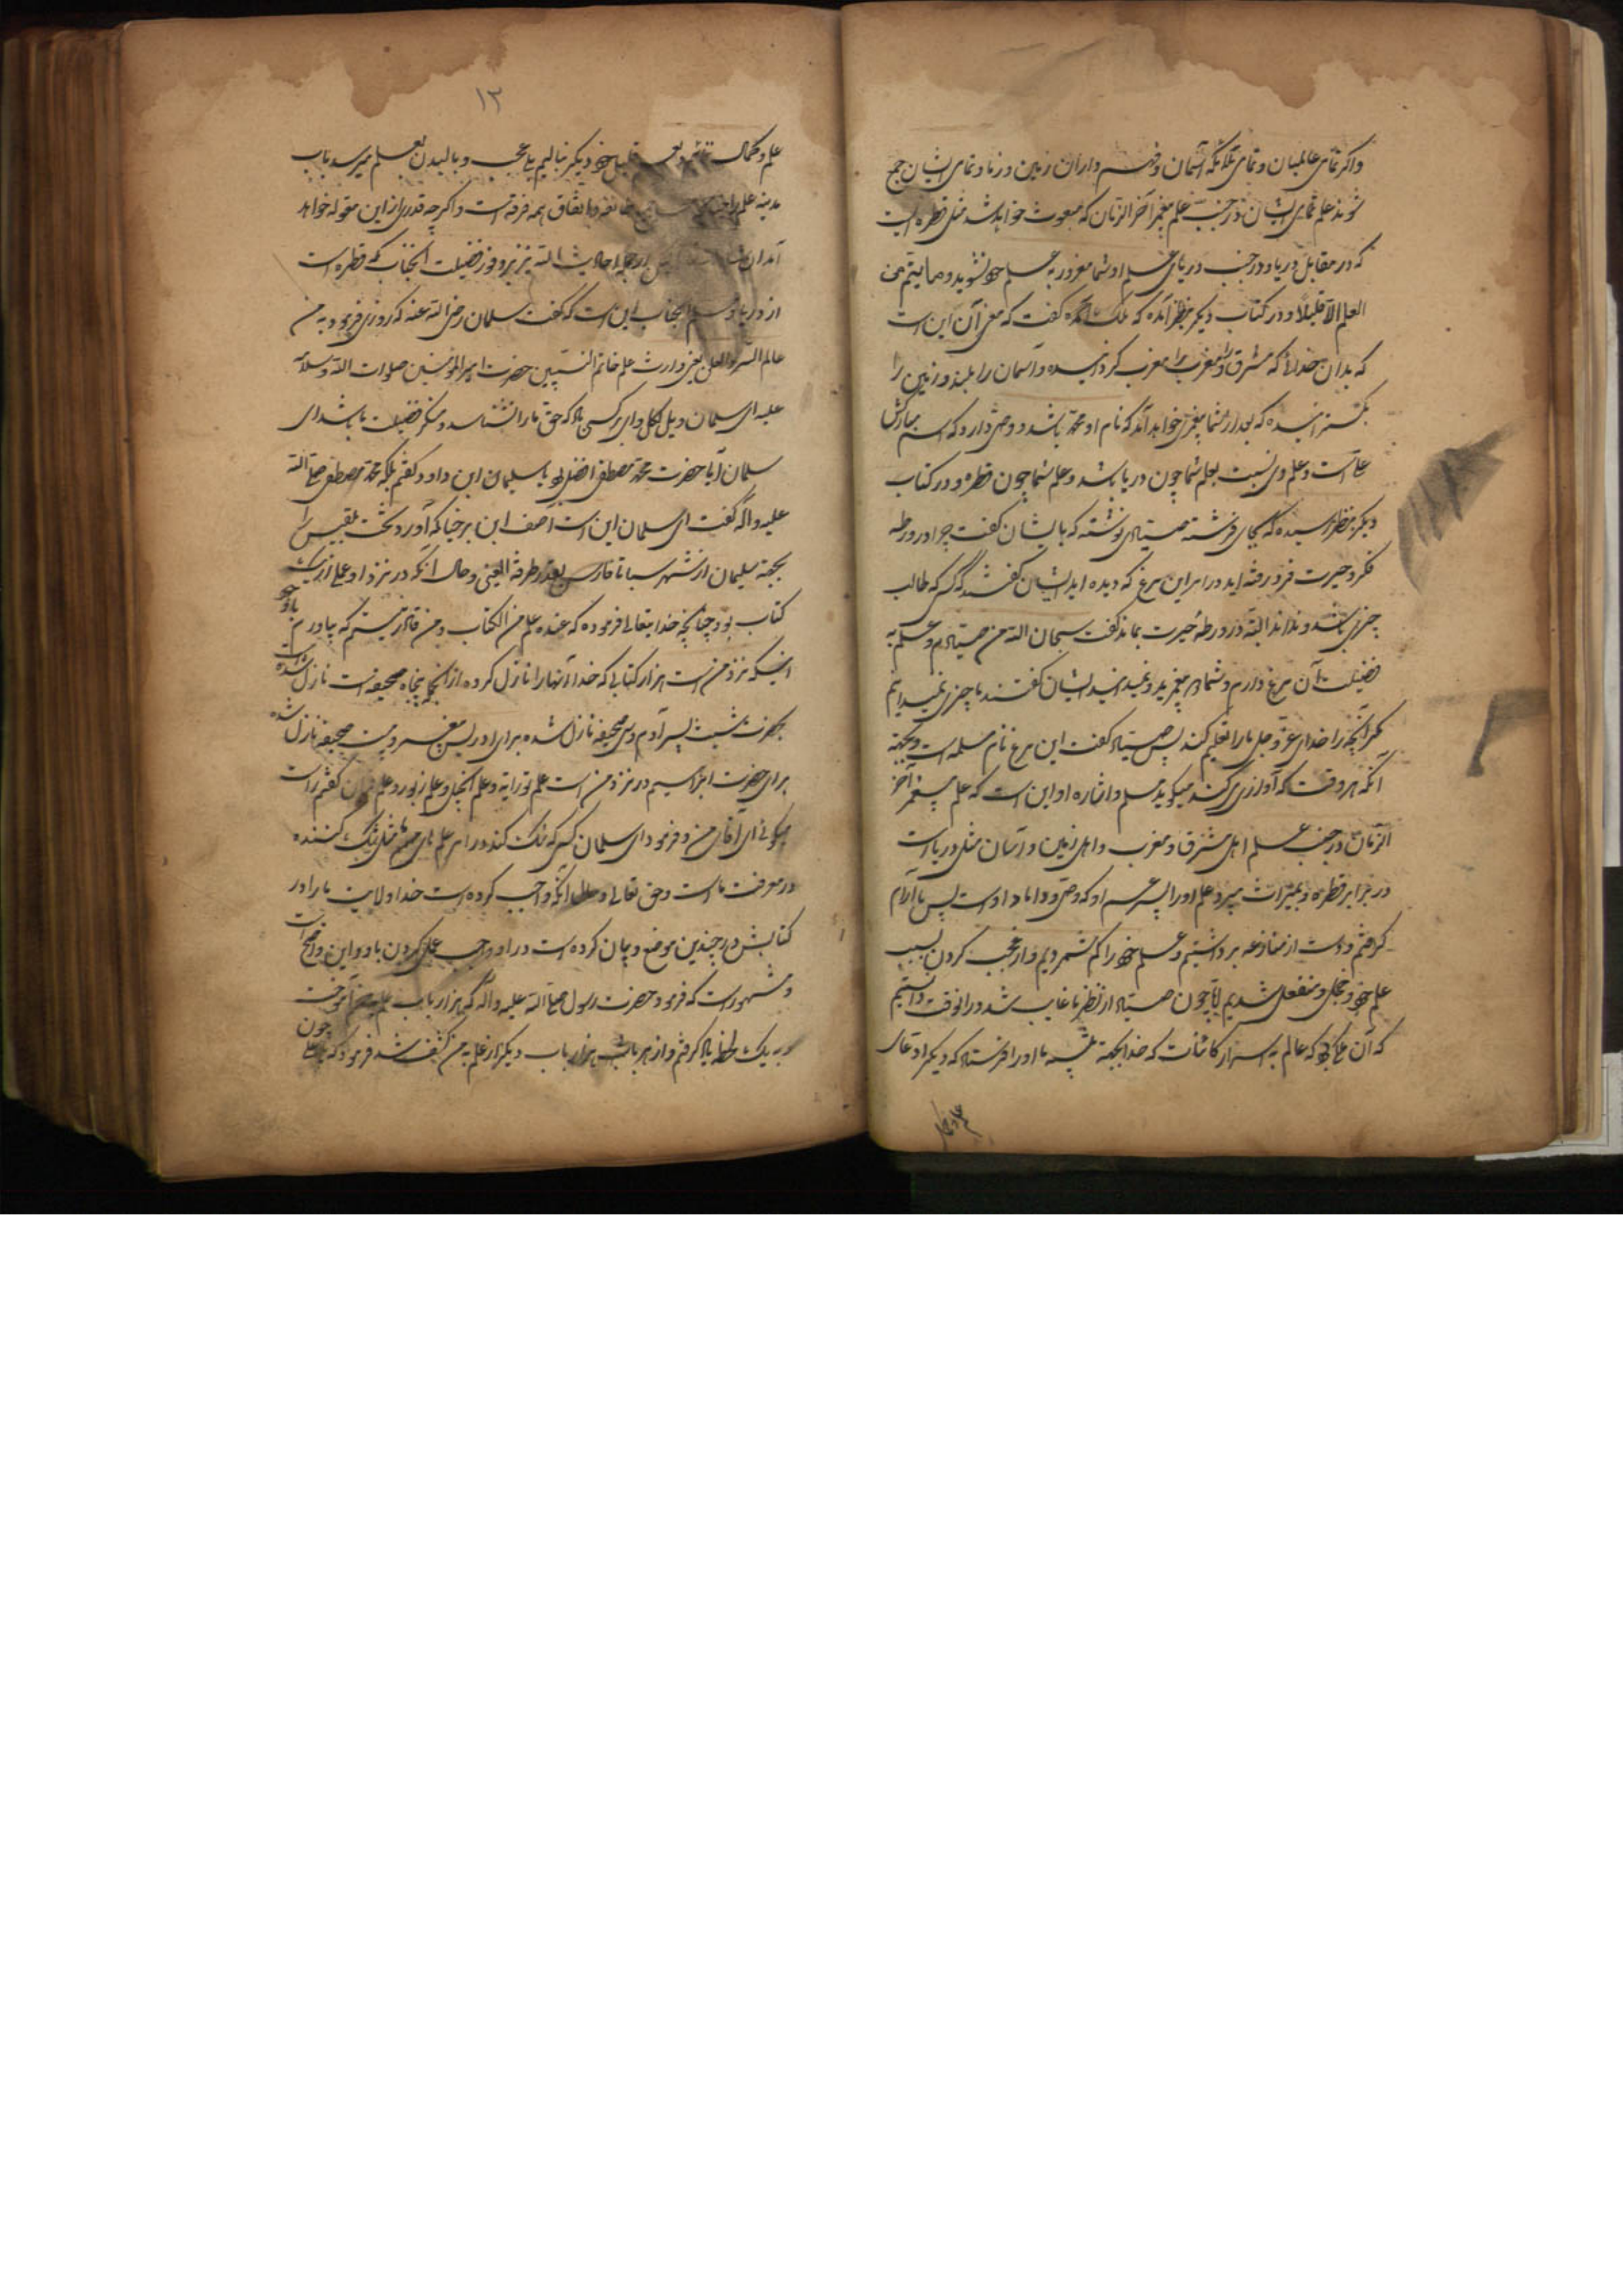 واکر تمامی عالمیان و تمامی ملائکه آسمان و داران زمین و زیاد و تمامی ایشان جمع
شوند علم تمامی ایشان در جنب علم پیغمبر آخر الزمان که مبعوث خواهد شد مثل قطره ایست
که در مقابل دریا و در جنب دریای علم او شما مغرور به علم خود نشوید و ما اوتیتم من
العلم الا قلیلا و در کتاب دیکر بنظر آمده که ملک آمده کفت که معنی آن این است
که بدان خدائی که مشرق را و مغرب را مغرب کردانیده و آسمان را بلند و زمین را
کسترانیده که بعد از شما پیغمبری خواهد آمد که نام او محمد باشد و وصی دارد که اسم مبارکش
علی است و علم وی نسبت بعلم شما چون دریا باشد و علم شما چون قطره و در کتاب
دیکر بنظر رسیده که بجای فرشته صیادی نوشته که بایشان کفت چرا در ورطه
فکر و حیرت فرو رفته اید در امر این مرغ که دیده اید ایشان کفتند که کسی که طالب
چیزی باشد و نداند البته در ورطه حیرت بماند کفت سبحان الله من صیادم و علم به
فضیلت آن مرغ دارم و شما دو پیغمبرید و نمیدانید ایشان کفتند ما چیزی نمیدانیم
مکر آنچه را خدای عز و جل ما را تعلیم کند پس صیاد کفت این مرغ نام مسلمه است و بجهة
آنکه هر وقت که آوازی کند میکوید مسلم و اشاره او این است که علم پیغمبر آخر
الزمان در جنب علم اهل مشرق و مغرب و اهل زمین و آسمان مثل دریاست
در برابر قطره و بمیراث میبرد علم او را پسر عم او که وصی و داماد اوست پس ما آرام
کرفتیم و دست از منازعه برداشتیم و علم خود را کم شمردیم و از عجب کردن بسبب
علم خود خجل و منفعل شدیم چون صیاد از نظر ما غایب شد در انوقت دانستیم
که آن ملکی بود که عالم به اسرار کائنات که خدا بجهة تنبیه ما او را فرستاد که دیکر ادعای
علم و کمال
۱۳
علم و کمال نمائیم و بعلم قلیل خود دیکر نبالیم یا عجب و بالیدن بعلم میرسد باب
مدینه علم را و اتفاق همه فرقه است و اکرچه قدری از این مقوله خواهد
آمد ان شاء الله از جمله احادیث الله نیز بر وفور فضیلت آنجناب که قطره است
از دریا و علم آنجناب این است که کفت سلمان رضی الله عنه که روزی فرمود به من
عالم السر و العلن یعنی وارث علم خاتم النبیین حضرت امیر المؤمنین صلوات الله و سلامه
علیه ای سلمان ویل کل وای بر کسی باد که حق ما را نشناسد و منکر فضیلت ما باشد ای
سلمان آیا حضرت محمد مصطفی افضل بود یا سلیمان ابن داود کفتم بلکه محمد مصطفی صلی الله
علیه و اله کفت ای سلمان این است آصف ابن برخیا که آورد تخت بلقیس را
بجهة سلیمان از شهر سبا تا فارس بقدر طرفة العینی و حال انکه در نزد او علمی از یک
کتاب بود چنانچه خدایتعالی فرموده که عنده علم من الکتاب و من قادر نیستم که بیاورم با وجود
اینکه نزد من است هزار کتابی که خدا آنها را نازل کرده از آنجا پنجاه صحیفه است نازل شده است
بحضرت شیث پسر آدم و سی صحیفه نازل شده برای ادریس پیغمبر و بیست صحیفه نازل شده
برای حضرت ابراهیم و در نزد من است علم توراية و علم انجیل و علم زبور و علم فرقان کفتم راست
میکوئی ای آقای من و فرمود ای سلمان کسی که شک کند در امر علم های ما مثل شک کننده
در معرفت ماست و حق تعالی و حال انکه واجب کرده است خدا ولایت ما را در
کتابش در چندین موضع و بیان کرده است در او واجب عمل کردن باو و این واضح است
و مشهور است که فرمود حضرت رسول صلی الله علیه و اله که هزار باب علم بمن آموخت
و به یک لحظه یاد کرفتم و از هر باب هزار باب دیکر از علم به من کشف شد فرمود که یا علی چون